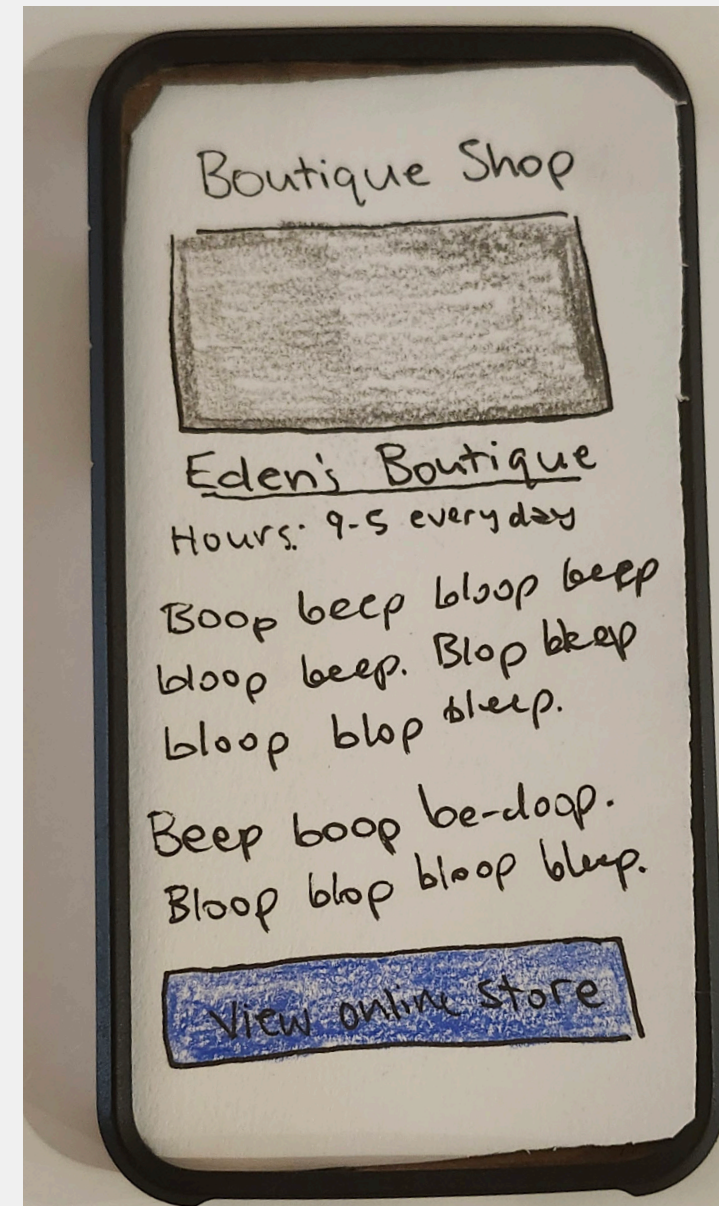 Boutique Shop
Eden's Boutique
Hours: 9-5 everyday
Boop beep bloop beep
bloop beep. Blop bleep
bloop blop bleep.
Beep boop be-doop.
Bloop blop bloop bleep.
View online store